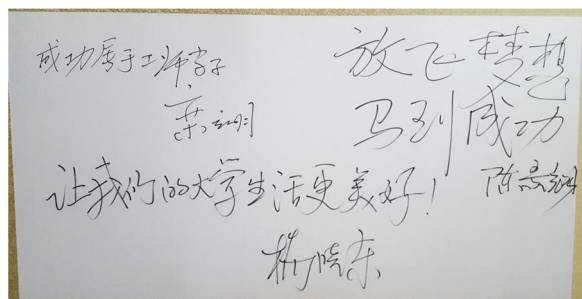 成功属于工师学子
放飞梦想
马到成功
让我们的大学生活更美好!
杨晓东